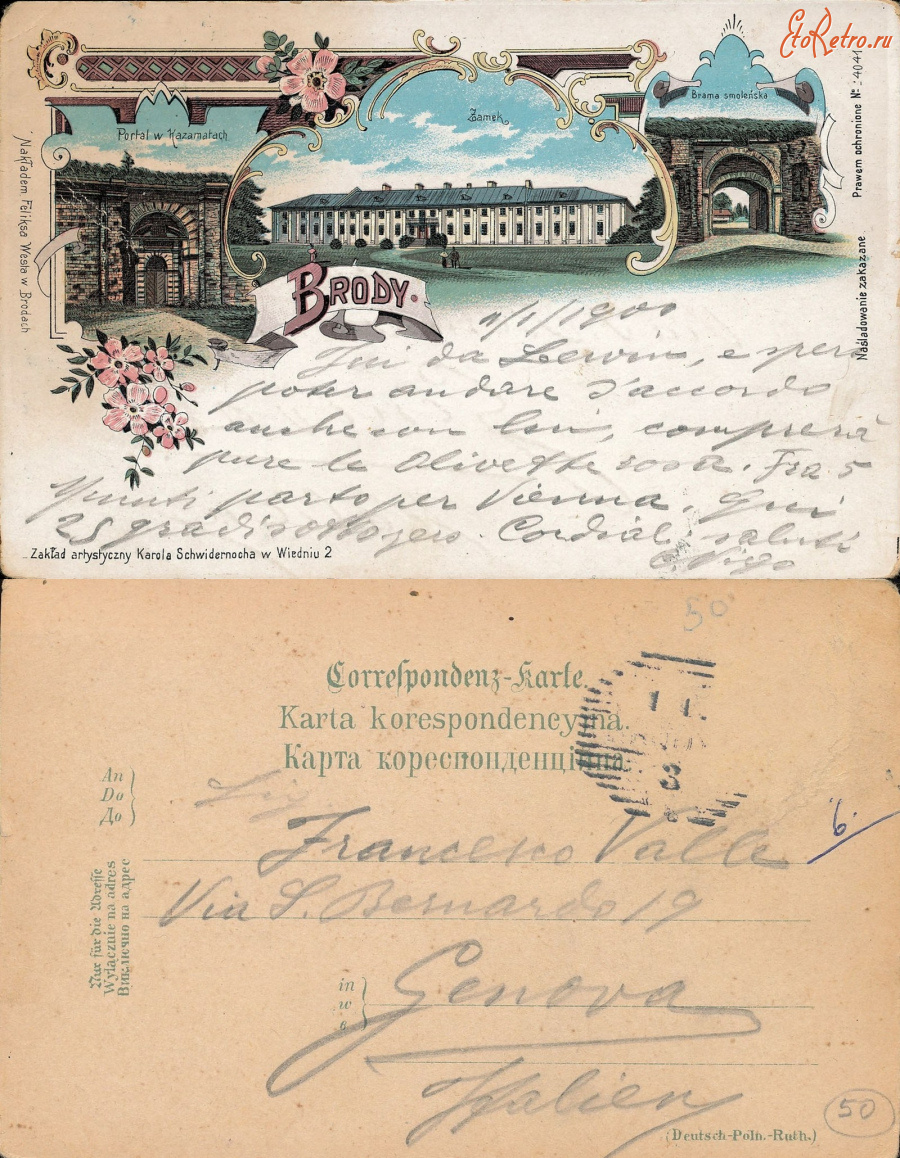 EtoRetro.ru
Portal w Kazamatach
Zamek
Brama smoleńska
Prawem ochronione №
Naśladowanie zakazane.
Nakładem Feliksa Wesla w Brodach
BRODY.
1/1900
da Lewin, e spero
poter andare d'accordo
anche con lui, comprerà
pure le Olivette rosa. Fra 5
minuti parto per Vienna, qui
25 gradi sotto zero. Cordiali saluti
Zakład artystyczny Karola Schwidernocha w Wiedniu 2
50
Correspondenz-Karte.
Karta korespondencyjna.
Карта кореспонденційна.
An
Do
До
Nur für die Adresse
Wyłącznie na adres
Виключно на адрес
Sig
Francesco Valle
6.
Via S. Bernardo 19
in
w
в
Genova
Italien
50
(Deutsch-Poln.-Ruth.)